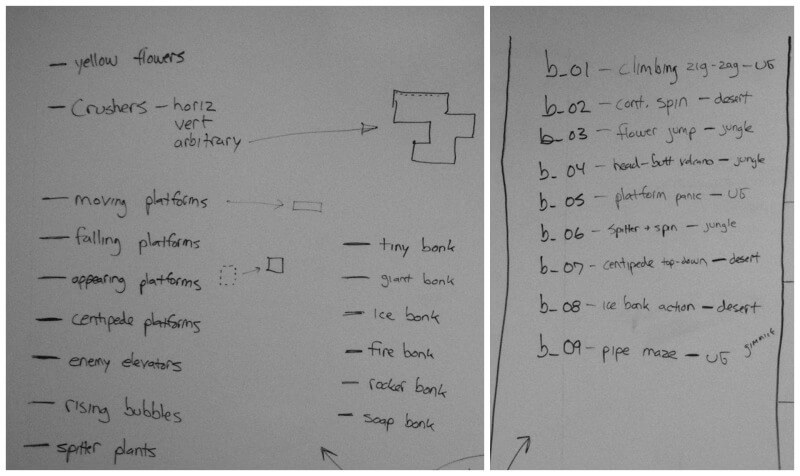 — yellow flowers
— Crushers — horiz
vert
arbitrary
— moving platforms
— falling platforms
— appearing platforms
— centipede platforms
— enemy elevators
— rising bubbles
— spitter plants
— tiny bonk
— giant bonk
— ice bonk
— fire bonk
— rocker bonk
— soap bonk
b_01 — climbing zig-zag — UG
b_02 — cont. spin — desert
b_03 — flower jump — jungle
b_04 — head-butt volcano — jungle
b_05 — platform panic — UG
b_06 — spitter + spin — jungle
b_07 — centipede top-down — desert
b_08 — ice bonk action — desert
b_09 — pipe maze — UG gimmick